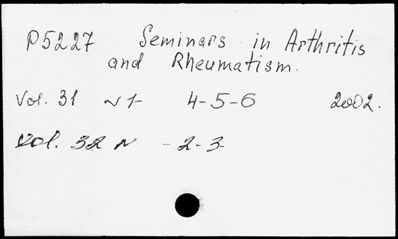 P5227 Seminars in Arthritis
and Rheumatism.
Vol. 31 N 1- 4-5-6 2002.
Vol. 32 N - 2-3-